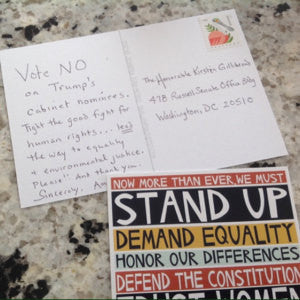 Vote NO
on Trump's
cabinet nominees.
Fight the good fight for
human rights... lead
the way to equality
& environmental justice.
Please! And thank you.
Sincerely,
The Honorable Kirsten Gillibrand
478 Russell Senate Office Bldg
Washington, DC 20510
NOW MORE THAN EVER, WE MUST
STAND UP
DEMAND EQUALITY
HONOR OUR DIFFERENCES
DEFEND THE CONSTITUTION
TRUST WOMEN